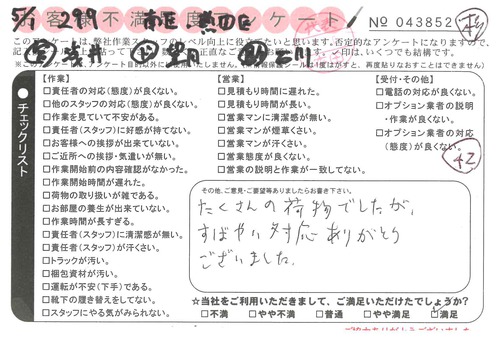 5/1 299 南区 熱田区
お客様不満足度アンケート
No 043852
【作業】
□責任者の対応(態度)が良くない。
□他のスタッフの対応(態度)が良くない。
□作業を見ていて不安がある。
□責任者(スタッフ)に好感が持てない。
□お客様への挨拶が出来ていない。
□ご近所への挨拶・気遣いが無い。
□作業開始前の内容確認がなかった。
□作業開始時間が遅れた。
□荷物の取り扱いが雑である。
□お部屋の養生が出来ていない。
□作業時間が長すぎる。
□責任者(スタッフ)に清潔感が無い。
□責任者(スタッフ)が汗くさい。
□トラックが汚い。
□梱包資材が汚い。
□運転が不安(下手)である。
□靴下の履き替えをしてない。
□スタッフにやる気がみられない。
【営業】
□見積もり時間に遅れた。
□見積もり時間が長い。
□営業マンに清潔感が無い。
□営業マンが煙草くさい。
□営業マンが汗くさい。
□営業態度が良くない。
□営業の説明と作業が一致してない。
【受付・その他】
□電話の対応が良くない。
□オプション業者の説明
・作業が良くない。
□オプション業者の対応
(態度)が良くない。
42
チェックリスト
その他、ご意見・ご要望等ありましたらお書き下さい。
たくさんの荷物でしたが、
すばやい対応ありがとう
ございました。
☆当社をご利用いただきまして、ご満足いただけたでしょうか?
□不満 □やや不満 □普通 □やや満足 □満足